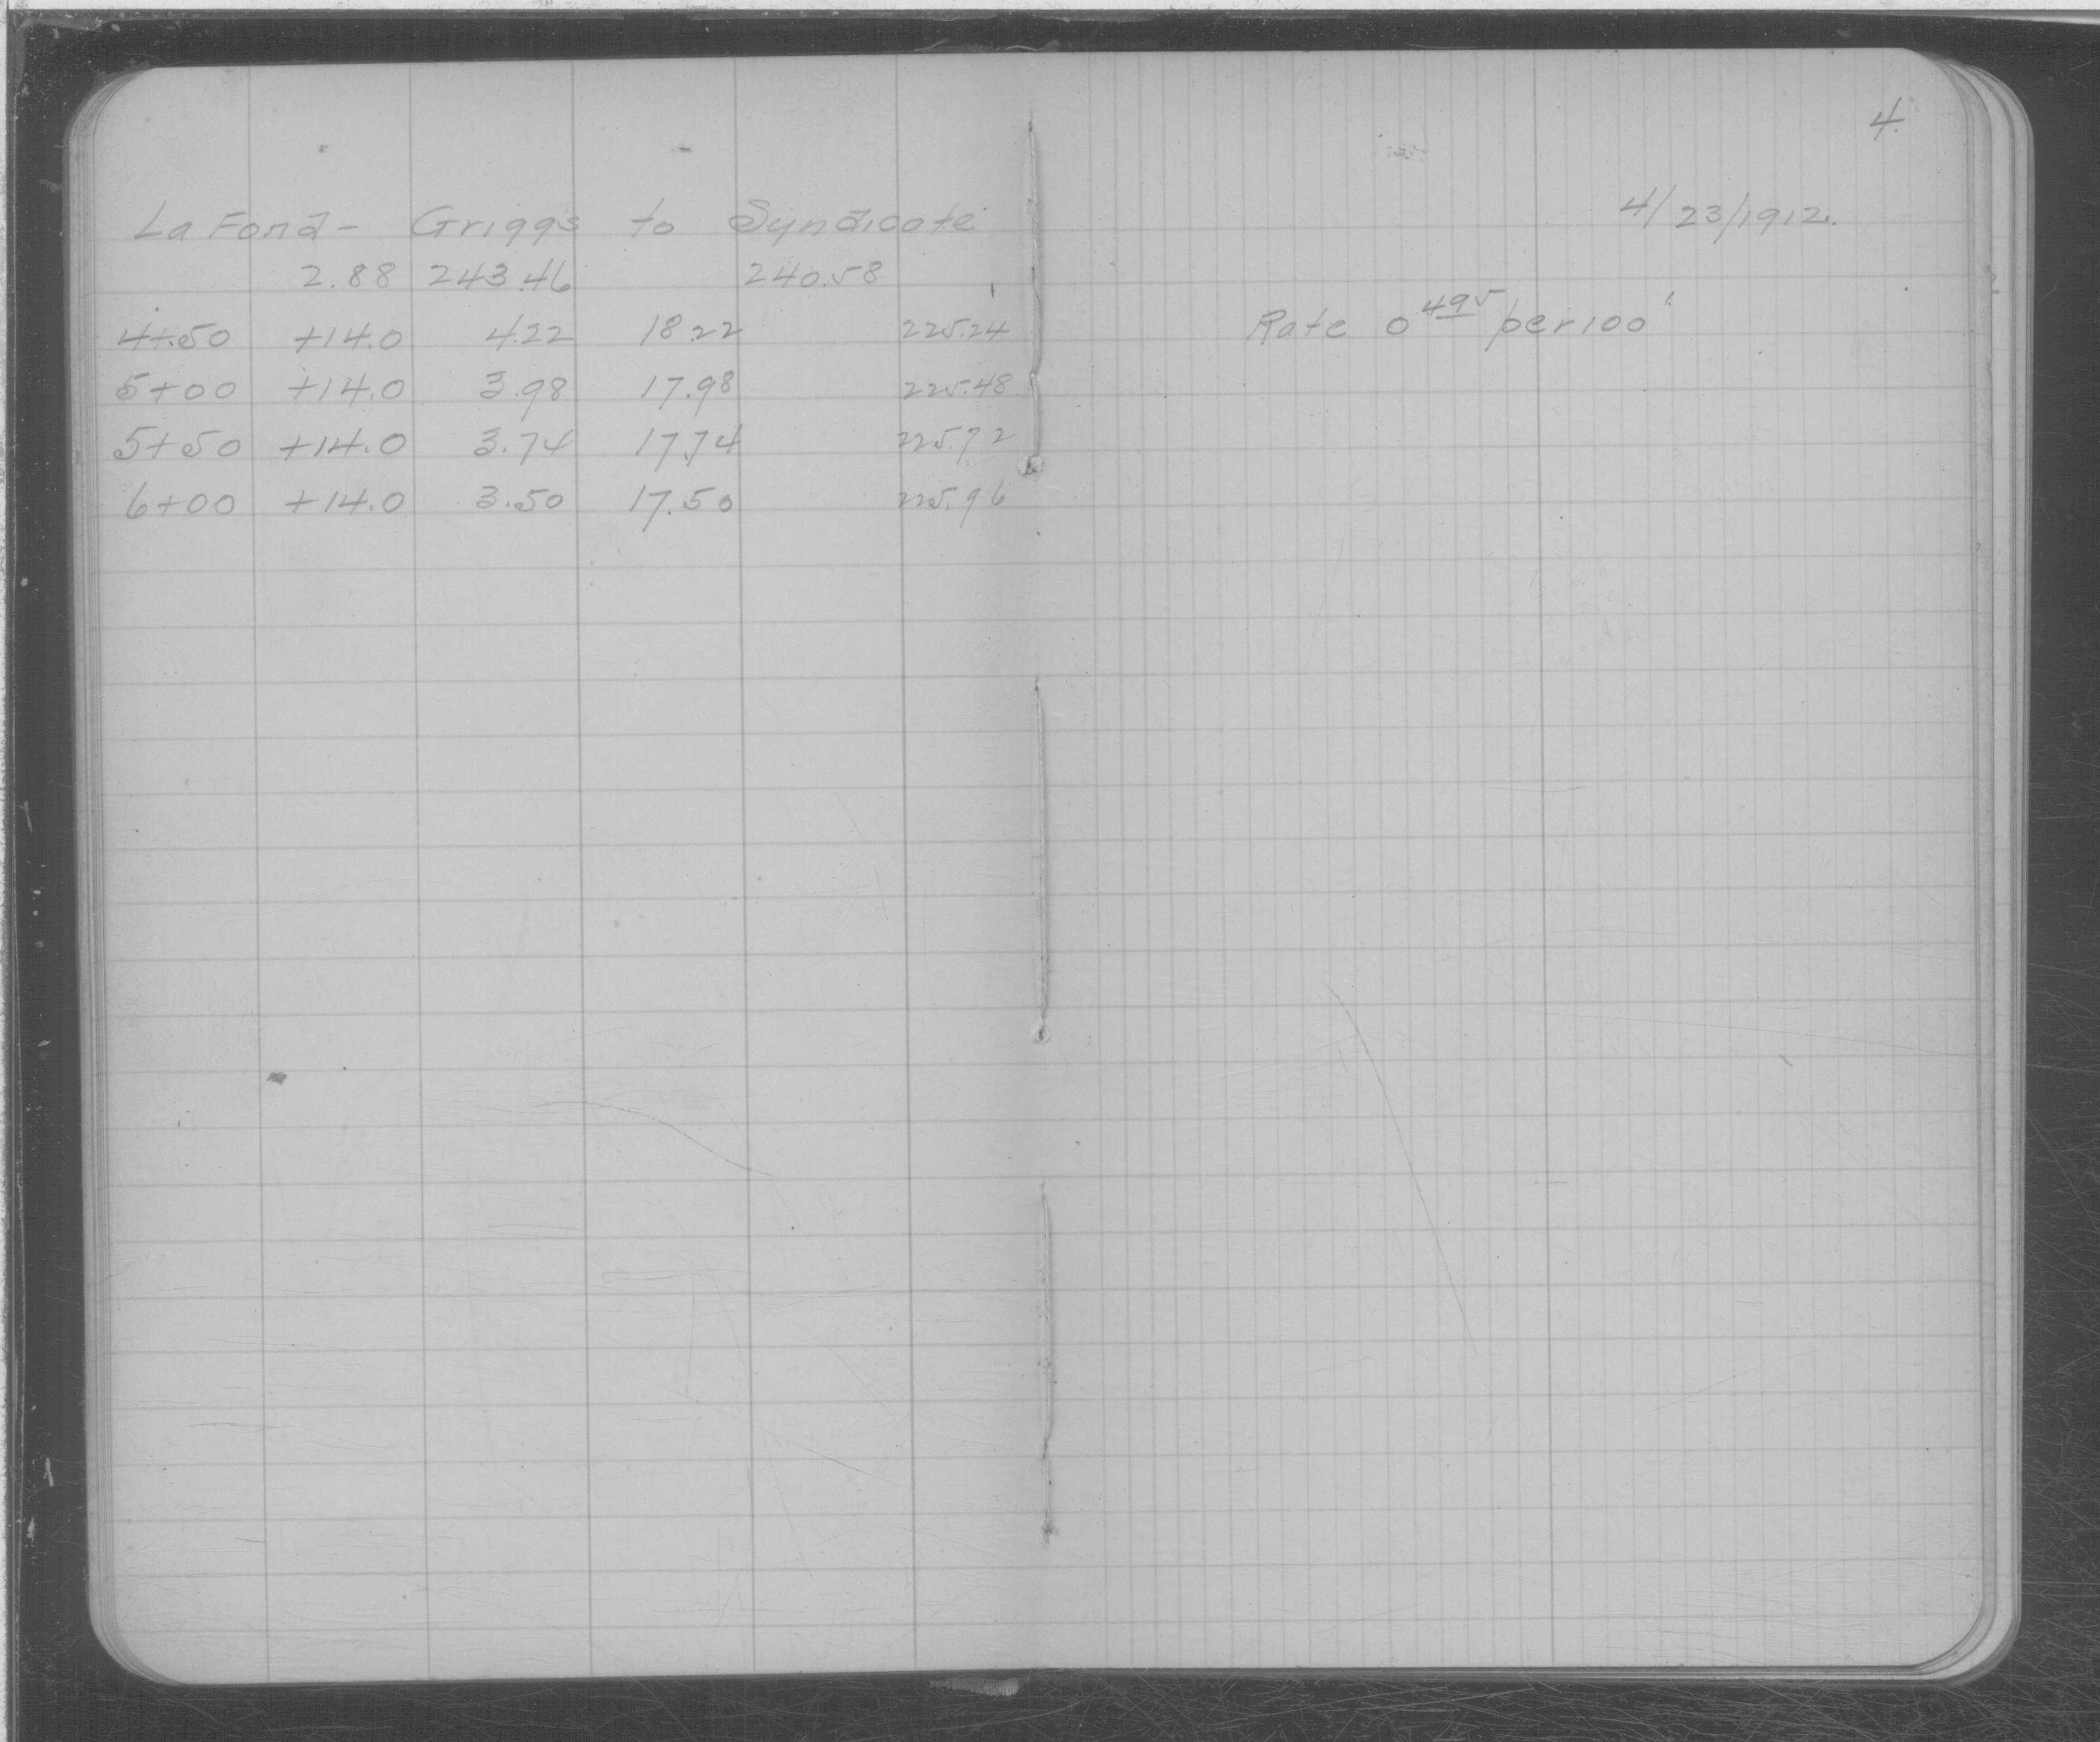 4.
La Fond - Griggs to Syndicate
4/23/1912.
2.88 243.46 240.58
4+50 +14.0 4.22 18.22 225.24
Rate 0 495 per 100'
5+00 +14.0 3.98 17.98 225.48
5+50 +14.0 3.74 17.74 225.72
6+00 +14.0 3.50 17.50 225.96